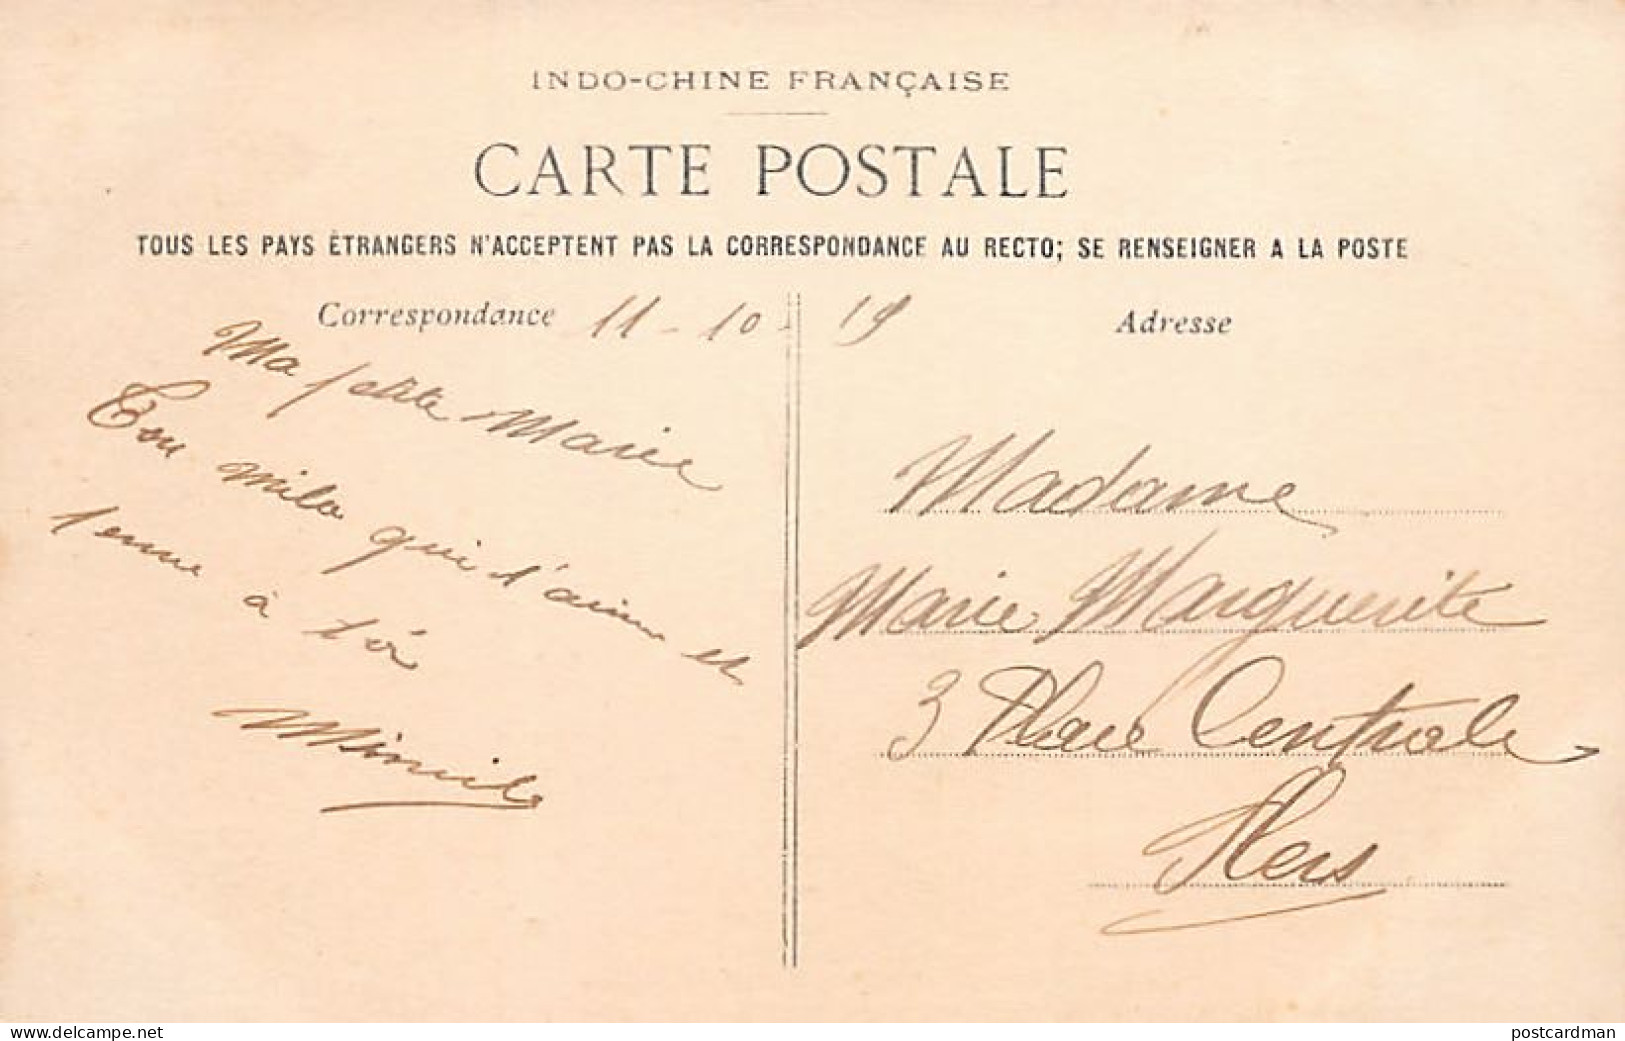 INDO-CHINE FRANÇAISE
CARTE POSTALE
TOUS LES PAYS ÉTRANGERS N'ACCEPTENT PAS LA CORRESPONDANCE AU RECTO; SE RENSEIGNER A LA POSTE
Correspondance 11-10-19
Adresse
Ma petite Marie
Ton qui t'aime et
à toi
Madame
Marie Marguerite
3 Place Centrale
Flers
www.delcampe.net
postcardman